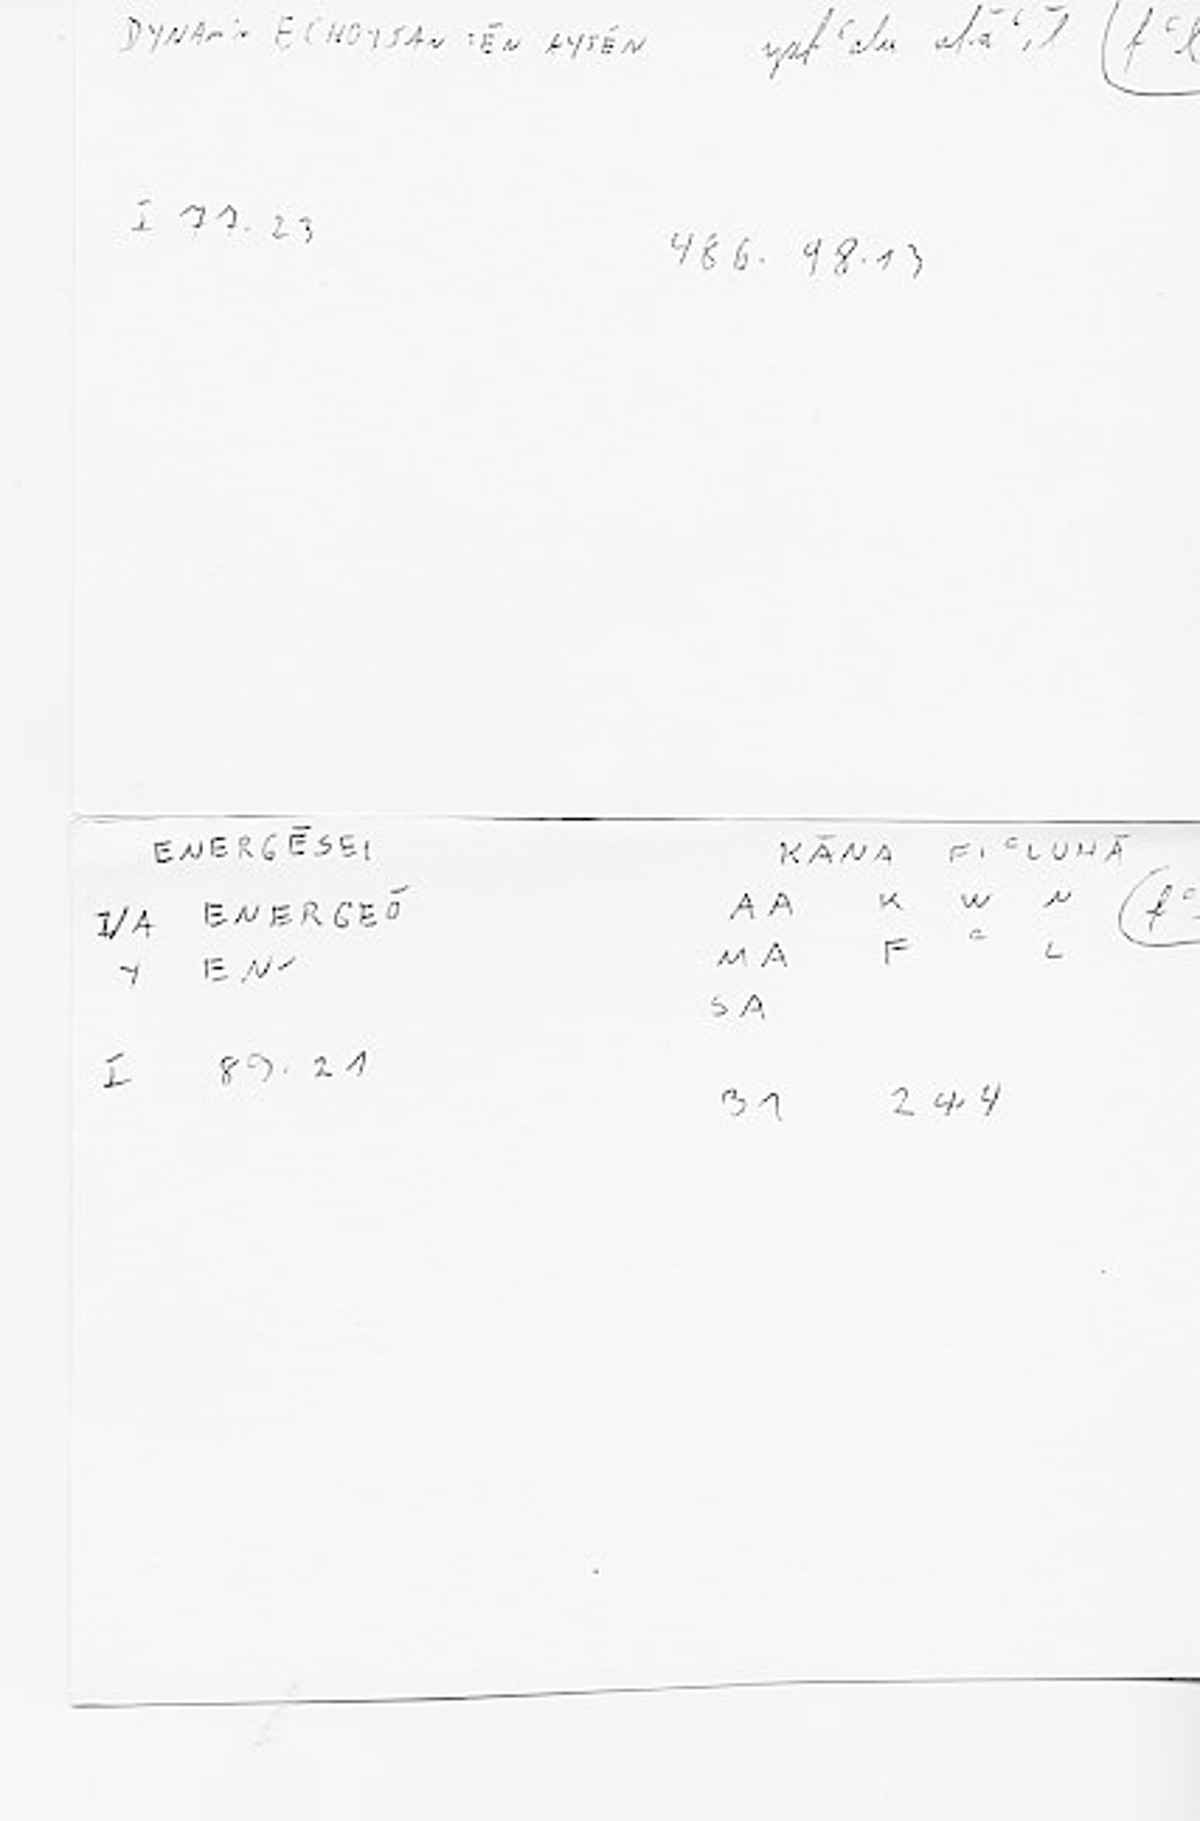 DYNAMIN ECHOYSAN TĒN AYTĒN
I 77.23 486. 98.13
ENERGĒSEI KĀNA FIᶜLUHĀ
I/A ENERGEŌ AA K W N
Y EN- MA F ᶜ L
SA
I 89.21
31 244